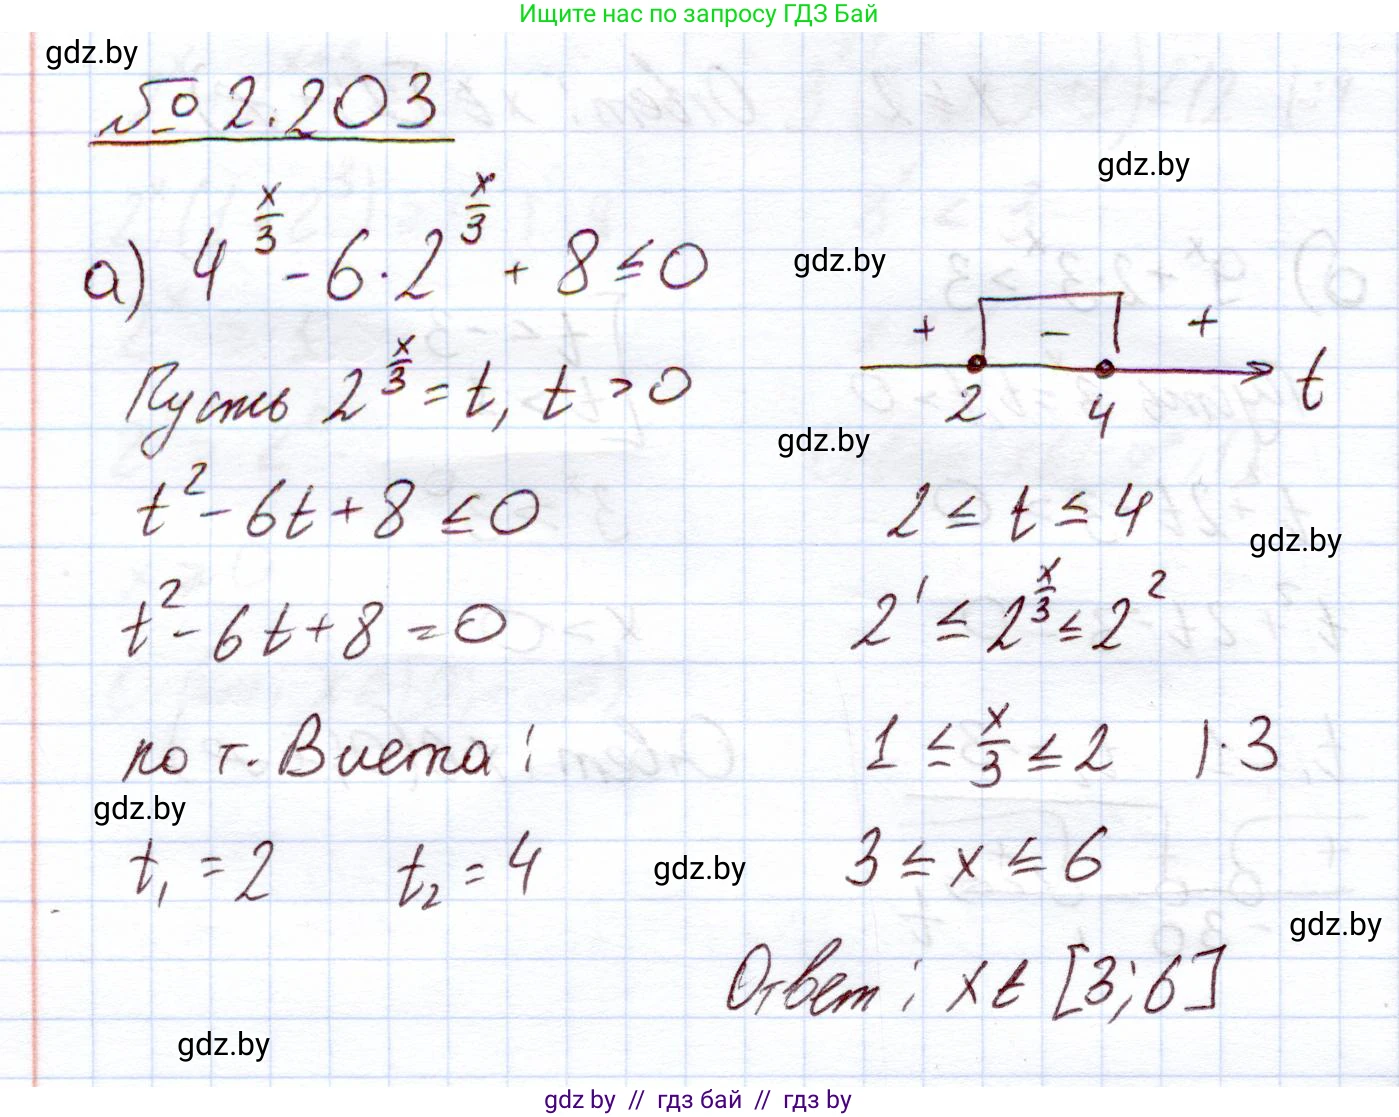 Ищите нас по запросу ГДЗ Бай
gdz.by
№ 2.203
gdz.by
а) 4^(x/3) - 6·2^(x/3) + 8 ≤ 0
gdz.by
+ - +
2 4 t
Пусть 2^(x/3) = t, t > 0
gdz.by
t² - 6t + 8 ≤ 0
t² - 6t + 8 = 0
по т. Виета:
gdz.by
t₁ = 2 t₂ = 4
gdz.by
2 ≤ t ≤ 4
gdz.by
2¹ ≤ 2^(x/3) ≤ 2²
1 ≤ x/3 ≤ 2 |·3
3 ≤ x ≤ 6
gdz.by
Ответ: x ∈ [3; 6]
gdz.by
gdz by // гдз бай // гдз by